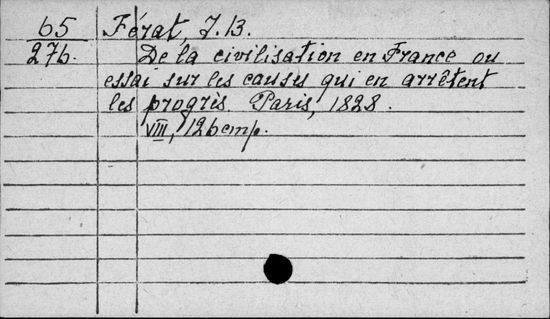 65 Férat, J.B.
276. De la civilisation en France ou
essai sur les causes qui en arrêtent
les progrès. Paris, 1828.
VIII, 126 стр.